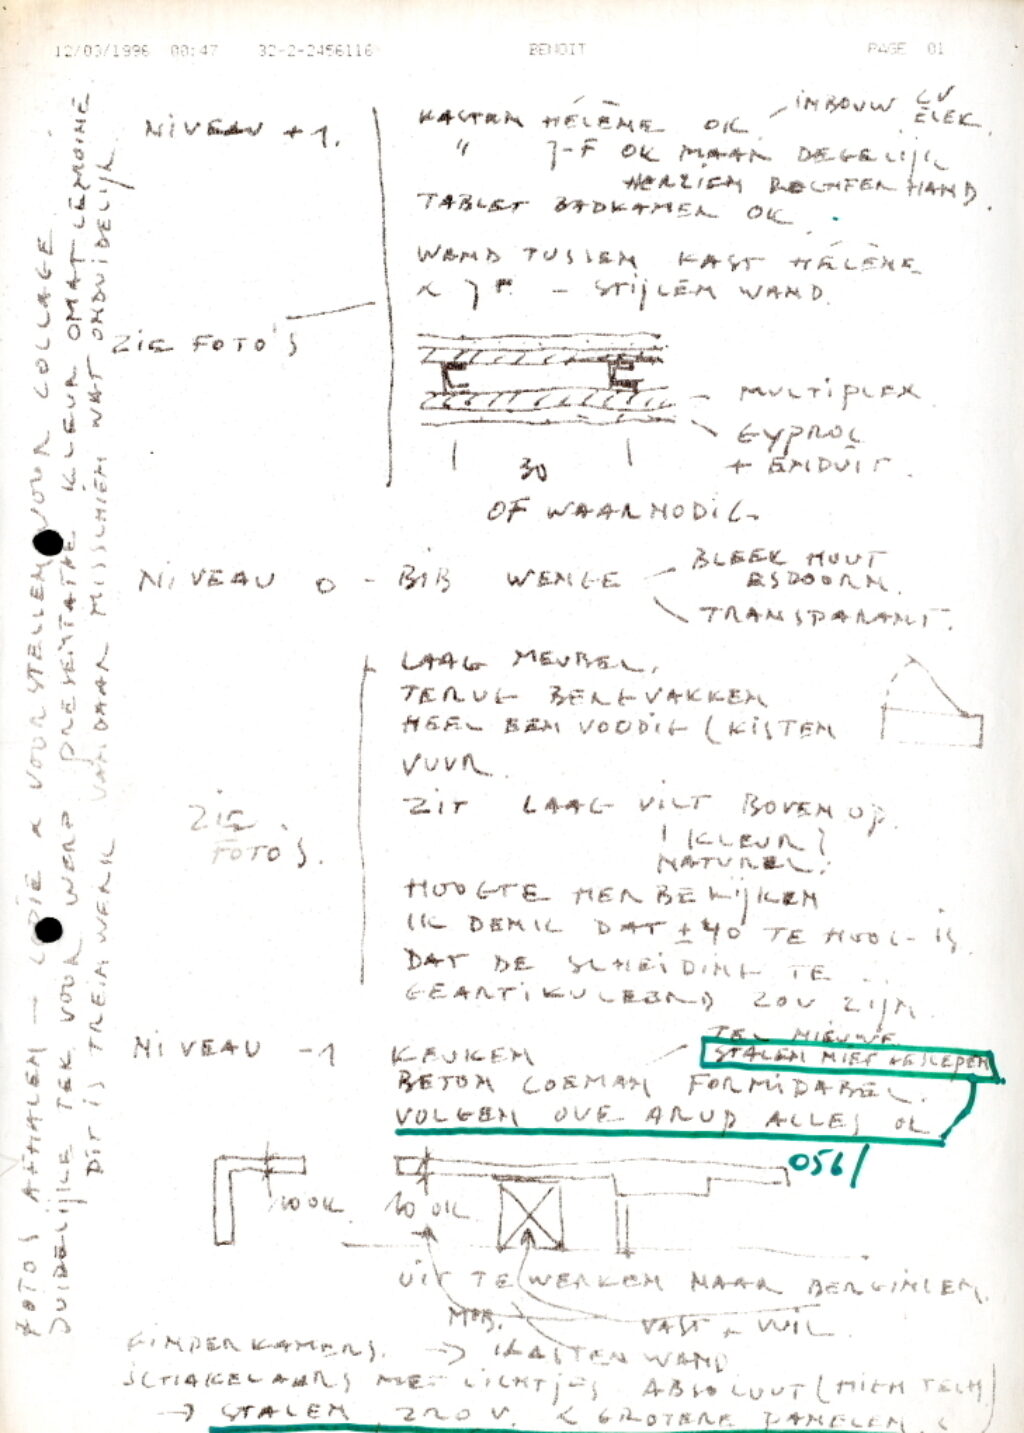 12/03/1996 00:47 32-2-2456116 BENOIT PAGE 01
NIVEAU +1.
KASTEN HÉLÈNE OK
INBOUW CV
ELEK.
" J-F OK MAAR DEGELIJK
HERZIEN RECHTER HAND.
TABLET BADKAMER OK
WAND TUSSEN KAST HÉLÈNE
& JF. - STIJLEN WAND.
ZIE FOTO'S
MULTIPLEX
GYPROC
+ ENDUIT.
30
OF WAAR NODIG.
NIVEAU 0 - BIB WENGE
BLEEK HOUT
ESDOORN.
TRANSPARANT.
LAAG MEUBEL.
TERUG BERGVAKKEN
HEEL EENVOUDIG (KISTEN
VUUR
ZIT LAAG VILT BOVENOP.
! KLEUR?
NATUREL.
ZIE
FOTO'S.
HOOGTE HERBEKIJKEN
IK DENK DAT ±40 TE HOOG IS
DAT DE SCHEIDING TE
GEARTIKULEERD ZOU ZIJN.
NIVEAU -1 KEUKEN
NIEUWE
STALEN NIET GESLEPEN
BETON COEMAN FORMIDABEL.
VOLGEN OVE ARUP ALLES OK
056/
10 OK. 10 OK
UIT TE WERKEN NAAR BERGING
MOB. VAST
KINDERKAMERS. → KASTENWAND
SCHAKELAARS MET LICHTJES ABSOLUUT (
→ STALEN 220 V. & GROTERE PANELEN
FOTO'S AFHALEN - COPIE & VOORSTELLEN VOOR COLLAGE
DUIDELIJKE TEK VOOR WERF PRESENTATIE KLEUR OMAT LEMOINE
DIT IS TREINWERK VANDAAR MISSCHIEN WAT ONDUIDELIJK